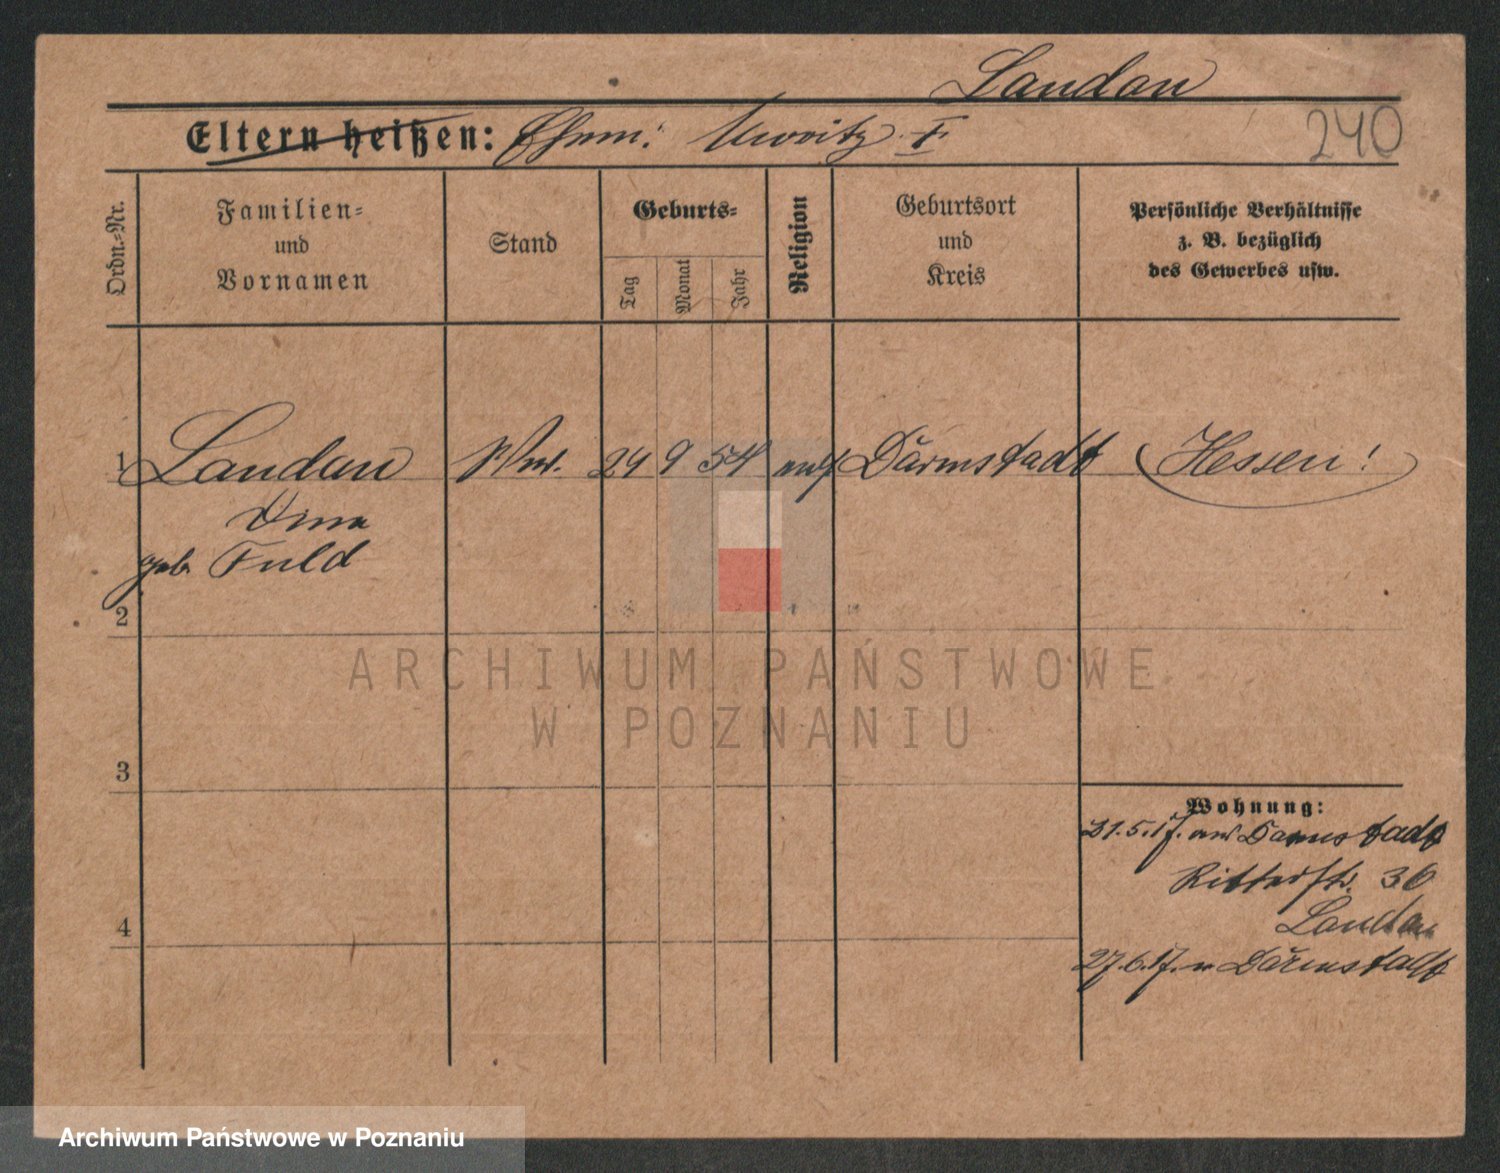 Landau
Eltern heißen: Ehem: Moritz †
240
Ordn.-Nr.
Familien=
und
Vornamen
Stand
Geburts=
Tag
Monat
Jahr
Religion
Geburtsort
und
Kreis
Persönliche Verhältnisse
z. B. bezüglich
des Gewerbes usw.
1 Landau Ww. 24 9 54 mos Darmstadt (Hessen!)
Dina
geb. Fuld
2
3
4
ARCHIWUM PAŃSTWOWE
W POZNANIU
Wohnung:
31.5.17. von Darmstadt
Ritterstr. 36
Landau
27.6.17. n Darmstadt
Archiwum Państwowe w Poznaniu